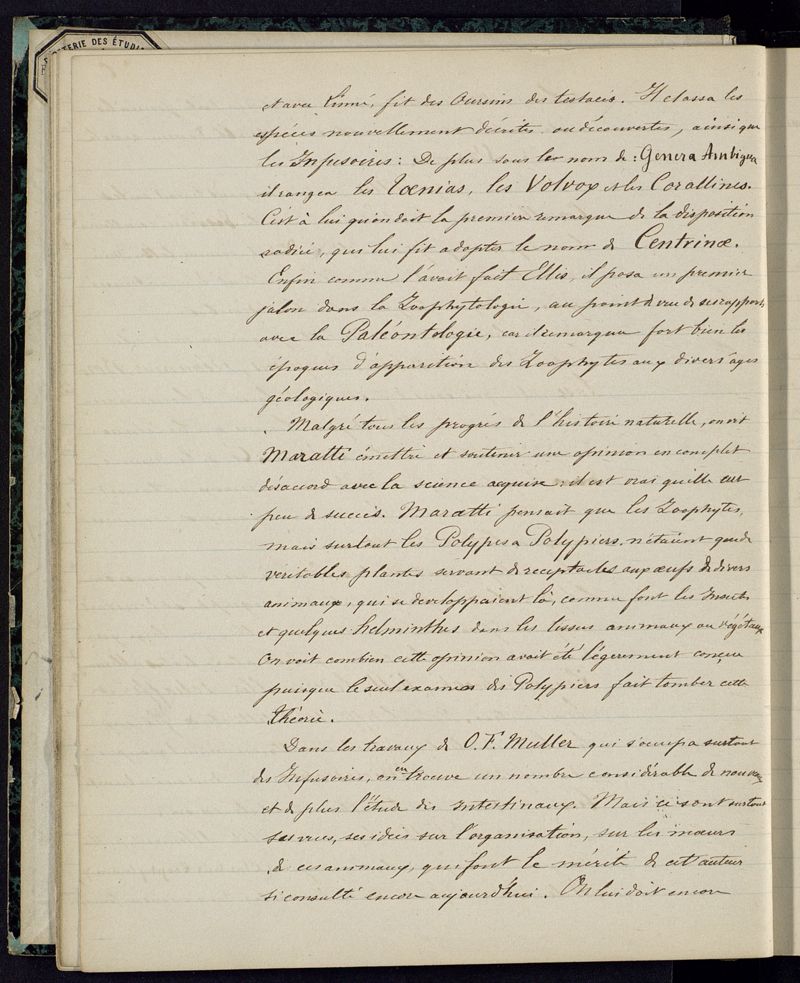 PAPETERIE DES ÉTUDI
et avec Linné, fit des Oursins des testacés. Il classa les
espèces nouvellement décrites ou découvertes, ainsi que
les Infusoires : De plus sous le nom de : Genera Ambigua
il rangea les Tœnias, les Volvox et les Corallines.
C'est à lui qu'on doit la première remarque de la disposition
radiée, qui lui fit adopter le nom de Centrinæ.
Enfin comme l'avait fait Ellis, il posa un premier
jalon dans la Zoophytologie, au point de vue de ses rapports
avec la Paléontologie, car il remarqua fort bien les
époques d'apparition des Zoophytes aux divers âges
géologiques.
Malgré tous les progrès de l'histoire naturelle, on vit
Maratti émettre et soutenir une opinion en complet
désaccord avec la science acquise : il est vrai qu'elle eut
peu de succès. Maratti pensait que les Zoophytes,
mais surtout les Polypes à Polypiers, n'étaient que de
véritables plantes servant de réceptacles aux œufs de divers
animaux, qui se développaient là, comme font les Insectes
et quelques helminthes dans les tissus animaux ou végétaux
On voit combien cette opinion avait été légèrement conçue
puisque le seul examen des Polypiers fait tomber cette
théorie.
Dans les travaux de O. F. Muller qui s'occupa surtout
des Infusoires, on en trouve un nombre considérable de nouveaux
et de plus l'étude des Intestinaux. Mais ce sont surtout
ses vues, ses idées sur l'organisation, sur les mœurs
de ces animaux, qui font le mérite de cet auteur
si consulté encore aujourd'hui. On lui doit encore